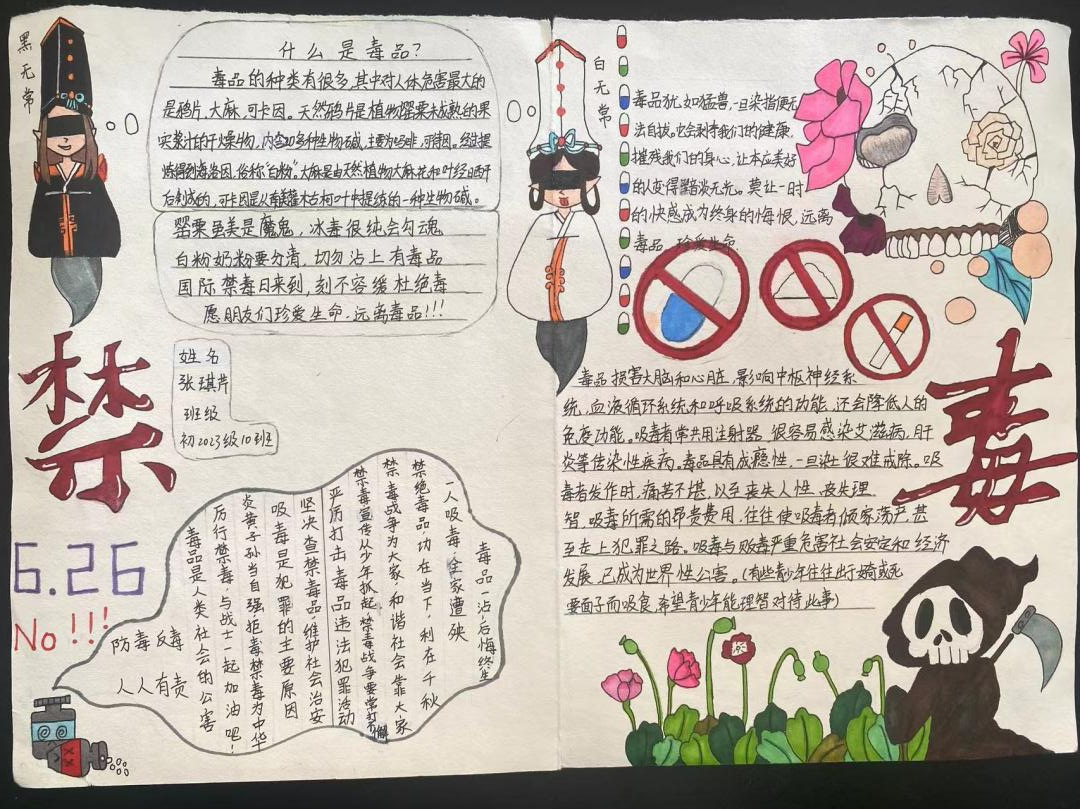 黑无常
什么是毒品?
毒品的种类有很多,其中对人体危害最大的
是鸦片,大麻,可卡因。天然鸦片是植物罂粟未成熟的果
实浆汁的干燥物,内含20多种生物碱,主要为吗啡,可待因。经过提
炼得到海洛因,俗称“白粉”,大麻是由天然植物大麻花和叶经日晒干
后制成的,可卡因是从南美灌木古柯叶中提练的一种生物碱。
罂粟虽美是魔鬼,冰毒很纯会勾魂
白粉奶粉要分清,切勿沾上有毒品
国际禁毒日来到,刻不容缓杜绝毒
愿朋友们珍爱生命,远离毒品!!!
禁
姓名
张琪芹
班级
初2023级10班
6.26
No!!!
防毒反毒
人人有责
毒品一沾,后悔终生
一人吸毒,全家遭殃
禁绝毒品,功在当下,利在千秋
禁毒战争为大家,和谐社会靠大家
禁毒宣传从少年抓起,禁毒战争要常打不懈
严厉打击毒品违法犯罪活动
坚决查禁毒品,维护社会治安
吸毒是犯罪的主要原因
炎黄子孙当自强拒毒禁毒为中华
厉行禁毒,与战士一起加油吧!
毒品是人类社会的公害
白无常
毒品犹如猛兽,一旦染指便无
法自拔。它会剥夺我们的健康,
摧残我们的身心,让本应美好
的人变得黯淡无光。莫让一时
的快感成为终身的悔恨,远离
毒品,珍爱生命
毒
毒品损害大脑和心脏,影响中枢神经系
统,血液循环系统和呼吸系统的功能,还会降低人的
免疫功能。吸毒者常共用注射器,很容易感染艾滋病,肝
炎等传染性疾病。毒品具有成瘾性,一旦染上很难戒除。吸
毒者发作时,痛苦不堪,以至丧失人性,丧失理
智,吸毒所需的昂贵费用,往往使吸毒者倾家荡产,甚
至走上犯罪之路。吸毒与贩毒严重危害社会安定和经济
发展,已成为世界性公害。(有些青少年往往出于好奇或死
要面子而吸食,希望青少年能理智对待此事)